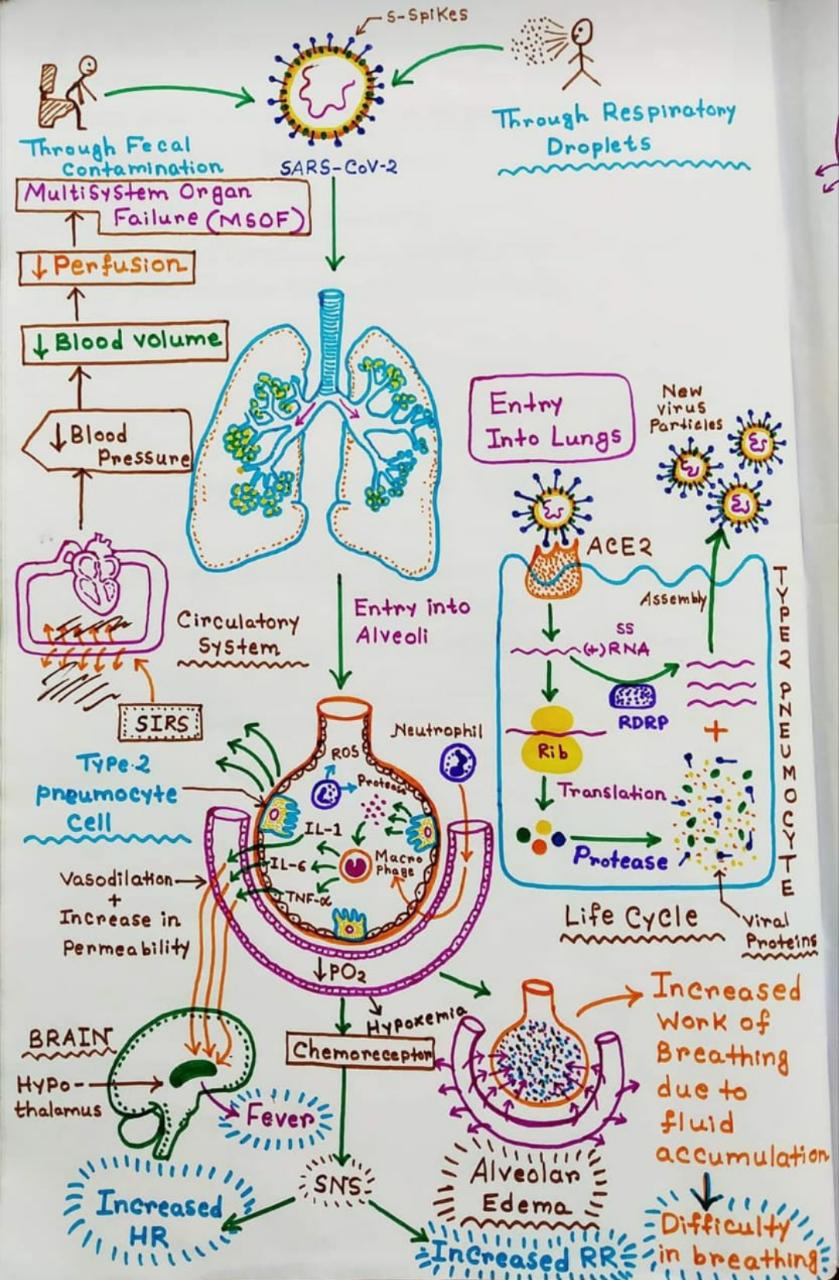 S-Spikes
Through Fecal
Contamination
SARS-CoV-2
Through Respiratory
Droplets
Multisystem Organ
Failure (MSOF)
↓ Perfusion
↓ Blood volume
↓ Blood
Pressure
Circulatory
System
SIRS
Entry into
Alveoli
Entry
Into Lungs
New
virus
Particles
ACE2
Assembly
SS
(+)RNA
RDRP
Rib
+
Translation
Protease
Viral
Proteins
Life Cycle
TYPE 2 PNEUMOCYTE
Type-2
pneumocyte
Cell
ROS
Protease
Neutrophil
IL-1
IL-6
TNF-α
Macro
phage
Vasodilation
+
Increase in
Permeability
↓PO2
Hypoxemia
Chemoreceptor
BRAIN
Hypo-
thalamus
Fever
SNS
Increased
HR
Increased RR
Alveolar
Edema
Increased
Work of
Breathing
due to
fluid
accumulation
Difficulty
in breathing